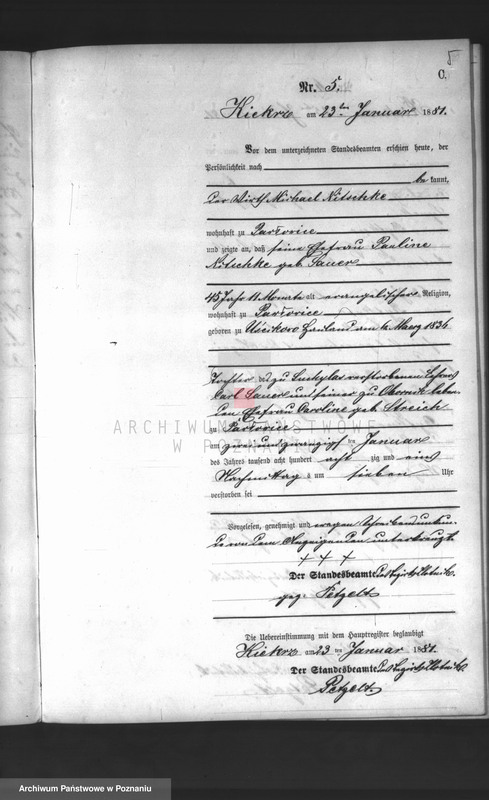 5
C.
Nr. 5.
Kiekrz am 23ten Januar 1881.
Vor dem unterzeichneten Standesbeamten erschien heute, der
Persönlichkeit nach
be kannt,
der Wirth Michael Nitschke
wohnhaft zu
und zeigte an, daß seine Ehefrau Pauline
Nitschke geb. Sauer
45 Jahr 11 Monate alt evangelischer Religion,
wohnhaft zu
geboren zu Hauland am
Tochter des zu verstorbenen Lehrers
Carl Sauer und seiner zu Obornik leben-
den Ehefrau Caroline geb. Streich
zu
am zwei und zwanzigsten Januar
des Jahres tausend acht hundert acht zig und eins
Nachmittag s um sieben Uhr
verstorben sei
Vorgelesen, genehmigt und wegen Schreibensunkun-
de von dem Anzeigenden unterkreuzt
+ + +
Der Standesbeamte des Bezirks
gez. Petzelt
Die Uebereinstimmung mit dem Hauptregister beglaubigt
Kiekrz am 23 ten Januar 1881.
Der Standesbeamte des Bezirks
Petzelt
ARCHIWUM PAŃSTWOWE
W POZNANIU
Archiwum Państwowe w Poznaniu